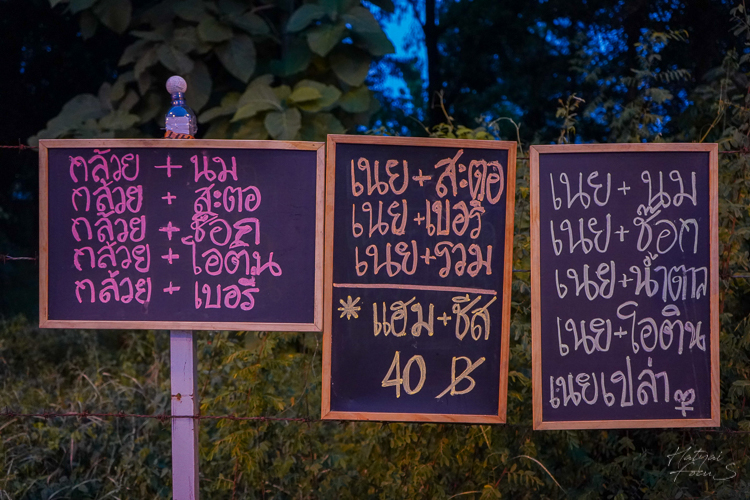 กล้วย + นม
กล้วย + สะตอ
กล้วย + ช๊อก
กล้วย + โอติน
กล้วย + เบอรี่
เนย + สะตอ
เนย + เบอรี่
เนย + รวม
* แฮม + ชีส
40 ฿
เนย + นม
เนย + ช๊อก
เนย + น้ำตาล
เนย + โอติน
เนยเปล่า
Hatyai
Focus